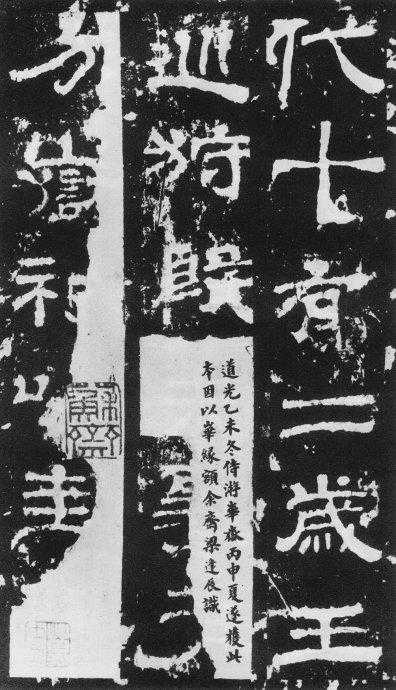 代十有二歲王
巡狩殷
道光乙未冬侍游華嶽丙申夏遂獲此
本因以華緣顏余齋梁逢辰識
方嶽祀以圭